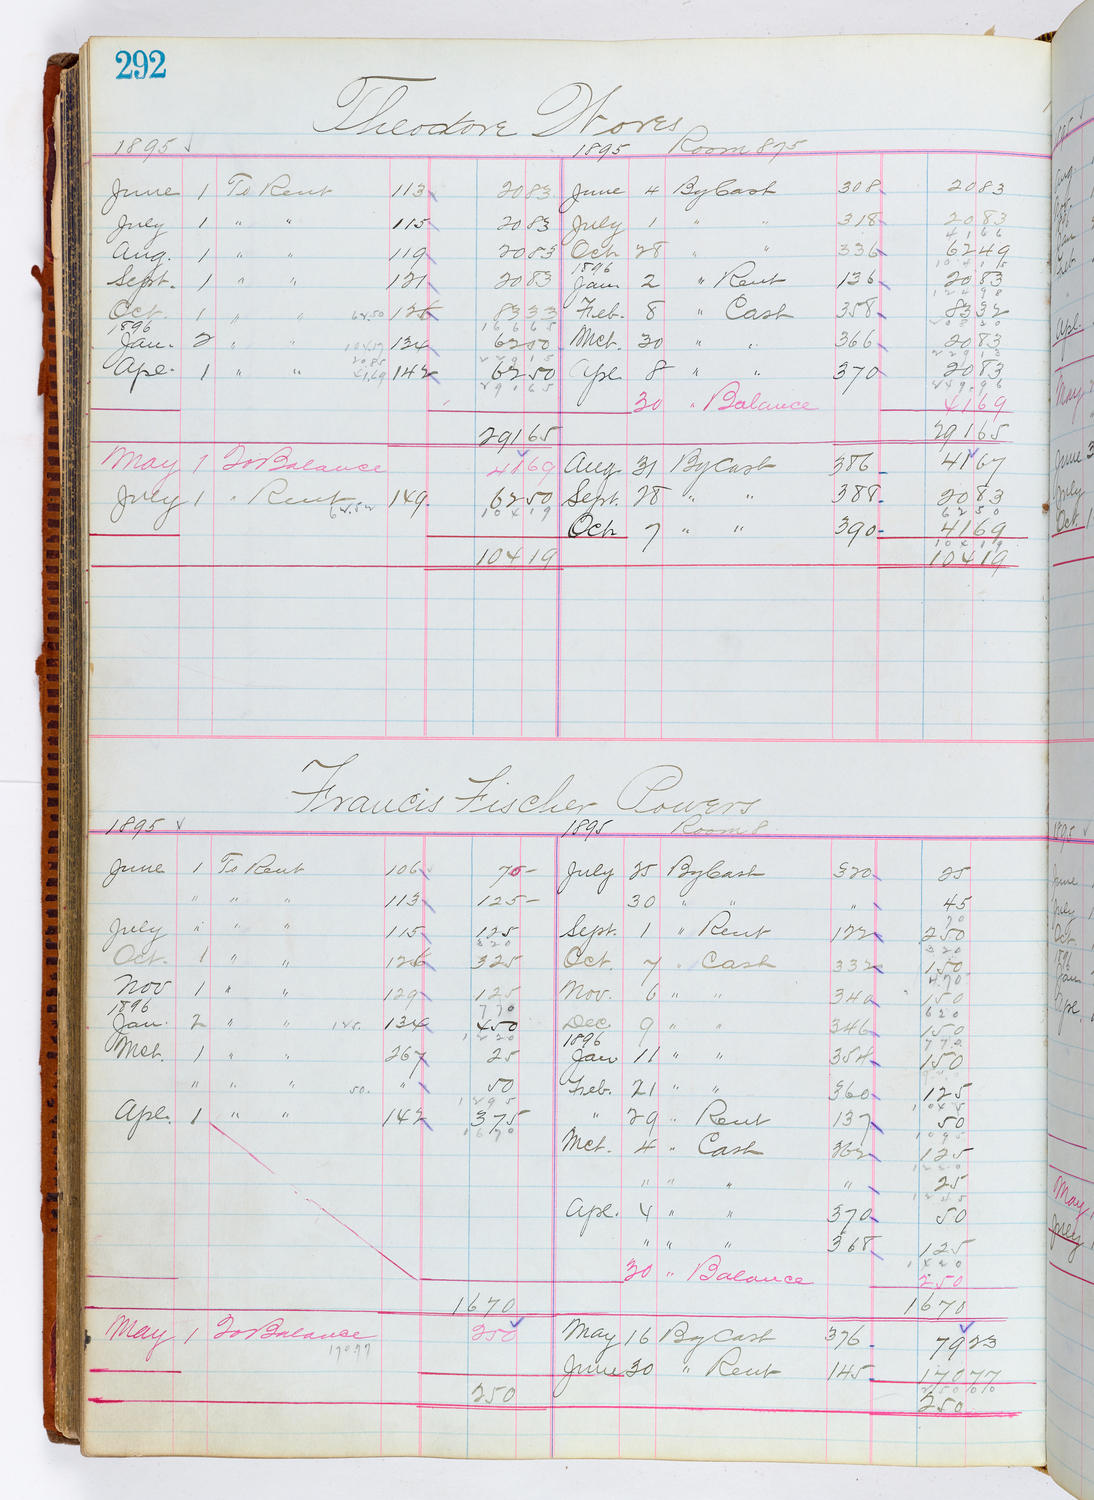 292
Theodore Wores
1895 1895 Room 875
June 1 To Rent 113 20 83 June 4 By Cash 308 20 83
July 1 " " 115 20 83 July 1 " " 318 20 83
41 66
Aug. 1 " " 119 20 83 Oct 28 " " 336 62 49
1896
Sept. 1 " " 121 20 83 Jan. 2 " Rent 136 20 83
124 98
Oct. 1 " " 62.50 126 83 33 Feb. 8 " Cash 358 83 32
1896 166 65 208 30
Jan. 2 " 134 62 50 Mch. 30 " " 366 20 83
229 15 229 13
Ape. 1 " " 41.69 142 62 50 Ape 8 " " 370 20 83
291 65 249 96
30 " Balance 41 69
291 65 291 65
May 1 To Balance 41 69 Aug 31 By Cash 386 41 67
July 1 " Rent 149 62 50 Sept. 28 " " 388 20 83
104 19 62 50
Oct 7 " " 390 41 69
104 19
104 19 104 19
Francis Fischer Powers
1895 1895 Room 8
June 1 To Rent 106 75 – July 25 By Cash 320 25
" " " 113 125 – 30 " " " 45
70
July " " " 115 125 Sept. 1 " Rent 122 250
320 320
Oct. 1 " " 126 325 Oct. 7 " Cash 332 150
470
Nov 1 " " 129 125 Nov. 6 " " 340 150
1896 770 620
Jan. 2 " " 134 450 Dec. 9 " " 346 150
1220 1896 770
Mch. 1 " " 267 25 Jan 11 " " 354 150
" " " 50. " 50 Feb. 21 " " 360 125
1295 1045
Ape. 1 " " 142 375 " 29 " Rent 137 50
1670 1095
Mch. 4 " Cash 362 125
1220
" " " " 25
1245
Ape. 4 " " 370 50
" " " 368 125
1420
30 " Balance 250
1670 1670
May 1 To Balance 250 May 16 By Cash 376 79 23
170.77
June 30 " Rent 145 170 77
250 00
250 250